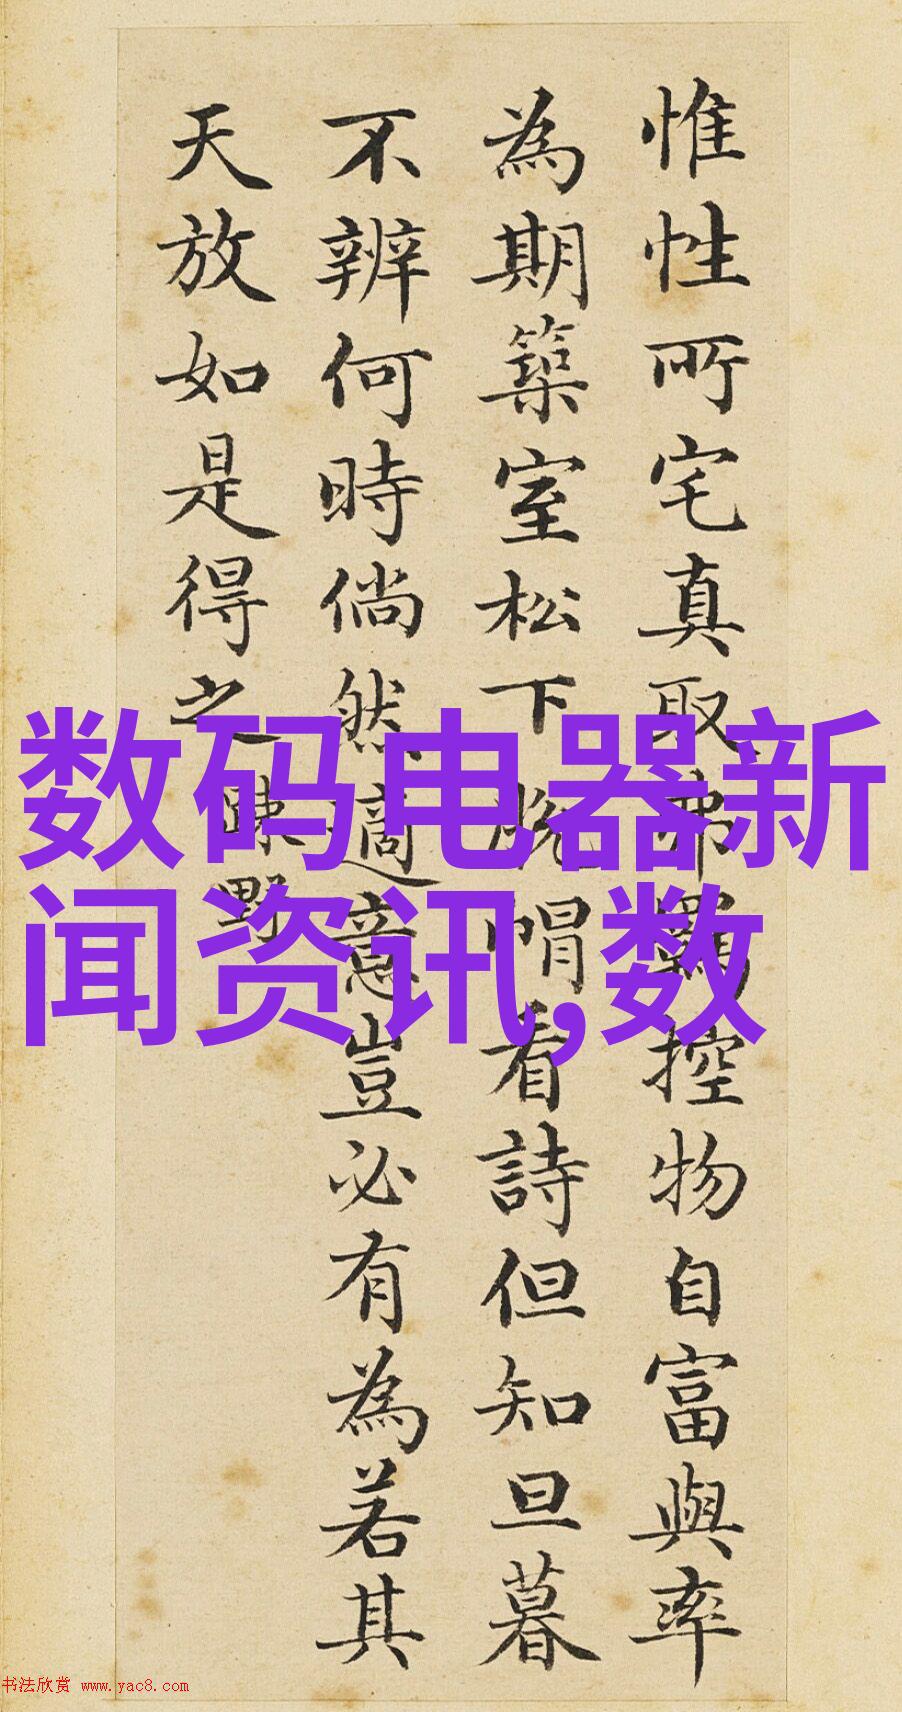 惟性所宅真取弗羈控物自富與率
為期築室松下脫帽看詩但知旦暮
不辨何時倘然適意豈必有為若其
天放如是得之 疎野
数码电器新
闻资讯,数
书法欣赏 www.yac8.com